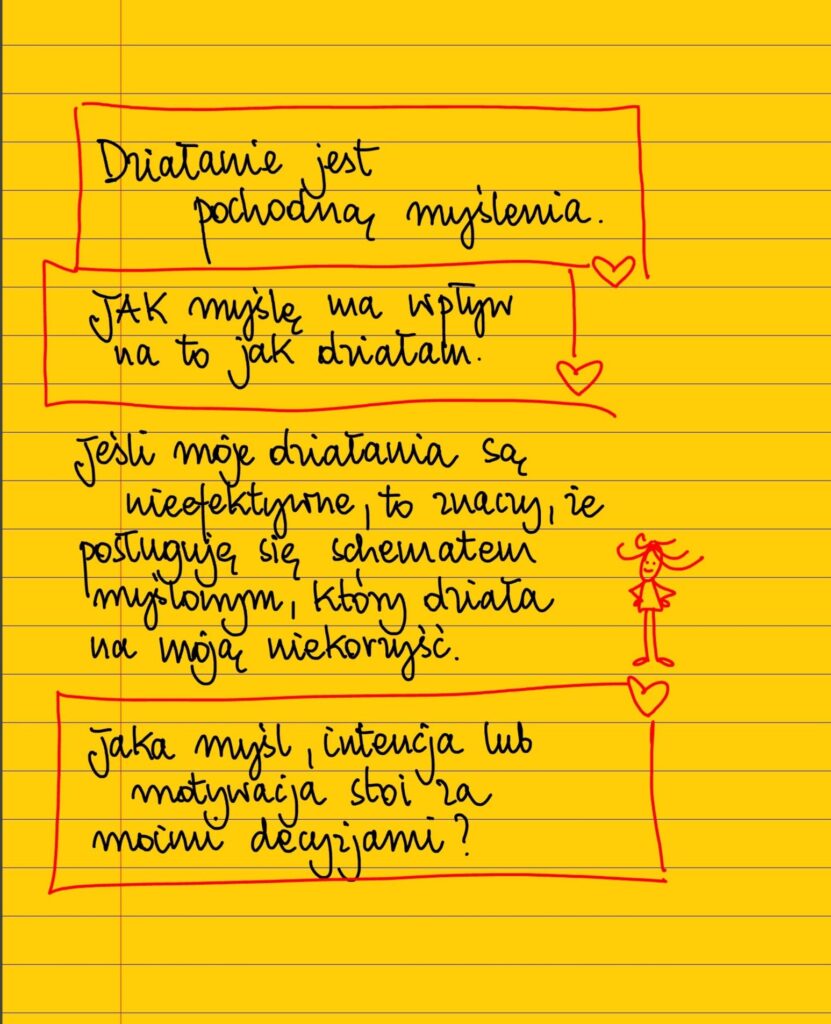 Działanie jest
pochodną myślenia.
JAK myślę ma wpływ
na to jak działam.
Jeśli moje działania są
nieefektywne, to znaczy, że
posługuję się schematem
myślowym, który działa
na moją niekorzyść.
Jaka myśl, intencja lub
motywacja stoi za
moimi decyzjami?